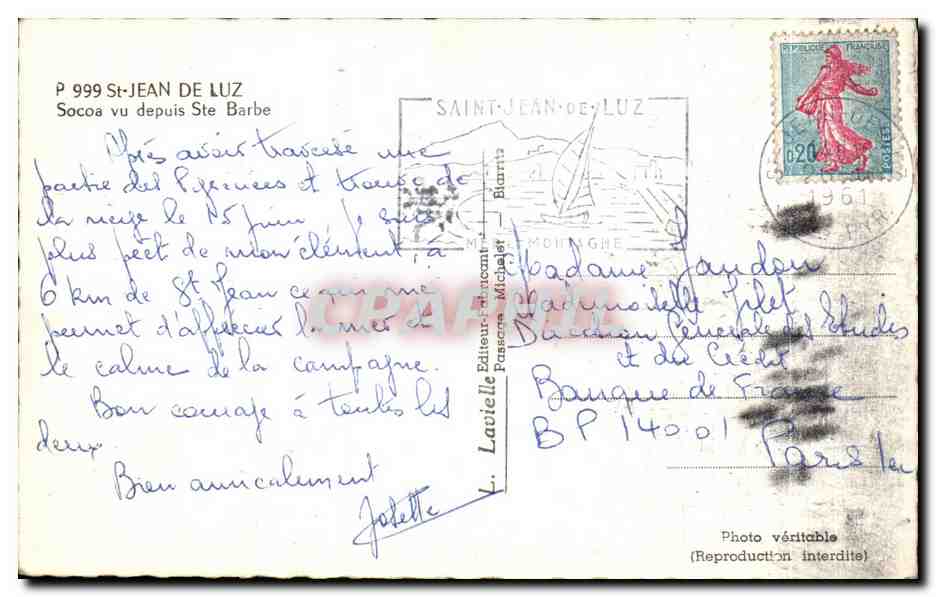 P 999 St-JEAN DE LUZ
Socoa vu depuis Ste Barbe
Après avoir traversé une
partie des Pyrénées et trouvé de
la neige le 15 juin je suis
plus prêt de mon élément, à
6 km de St Jean ce qui me
permet d'apprécier la mer et
le calme de la campagne.
Bon courage à toutes les
deux.
Bien amicalement
Josette
L. Lavielle Editeur-Fabricant
Passage Michelet - Biarritz
SAINT-JEAN-DE-LUZ
MER MONTAGNE
REPUBLIQUE FRANÇAISE
0,20
POSTES
1961
Madame Jandon
Mademoiselle
Direction Générale des Etudes
et du Crédit
Banque de France
BP 140.01
Paris 1er
Photo véritable
(Reproduction interdite)
CPAPHIL